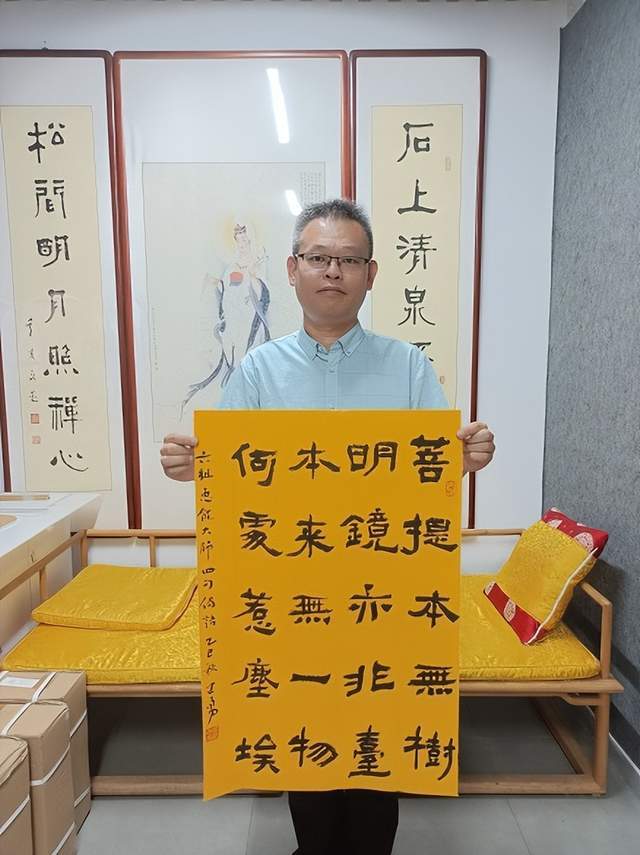 石上清泉
松間明月照禪心
菩提本無樹
明鏡亦非臺
本来無一物
何處惹塵埃
六祖惠能大師四句偈語乙巳秋